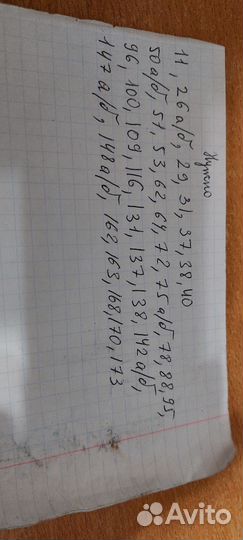 Нужно
11, 26 а/б, 29, 31, 37, 38, 40
50 а/б, 51, 53, 62, 64, 72, 75 а/б, 78, 88, 95,
96, 100, 109, 116, 131, 137, 138, 142 а/б,
147 а/б, 148 а/б, 162, 163, 168, 170, 173
Avito